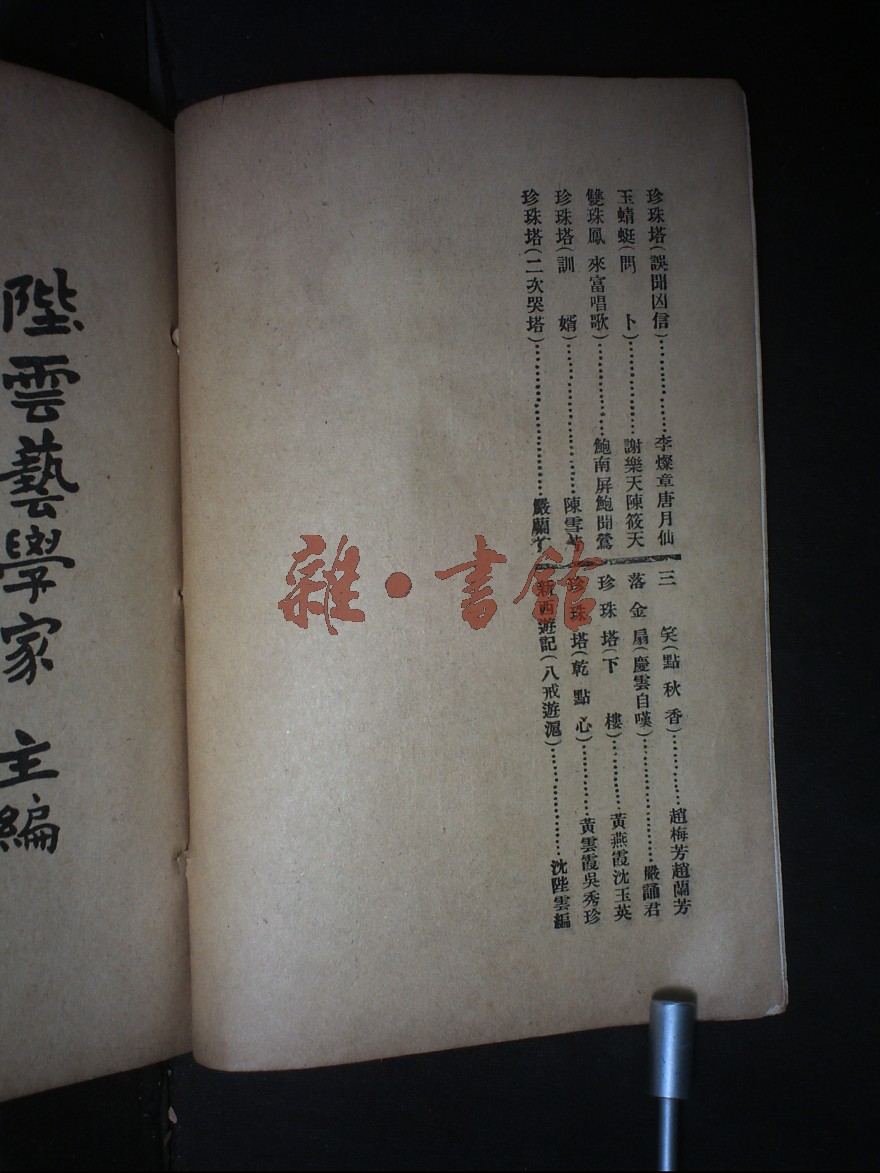 珍珠塔(誤聞凶信)………………李燦章唐月仙
玉蜻蜓(問 卜)………………謝樂天陳筱天
雙珠鳳 來富唱歌)………………鮑南屏鮑聞鶯
珍珠塔(訓 婿)………………陳雲
珍珠塔(二次哭塔)………………嚴蘭
三 笑(點秋香)………………趙梅芳趙蘭芳
落金扇(慶雲自嘆)………………嚴誦君
珍珠塔(下 樓)………………黃燕霞沈玉英
珍珠塔(乾點心)………………黃雲霞吳秀珍
新西遊記(八戒遊滬)………………沈陛雲編
陛雲藝學家 主編
雜·書館